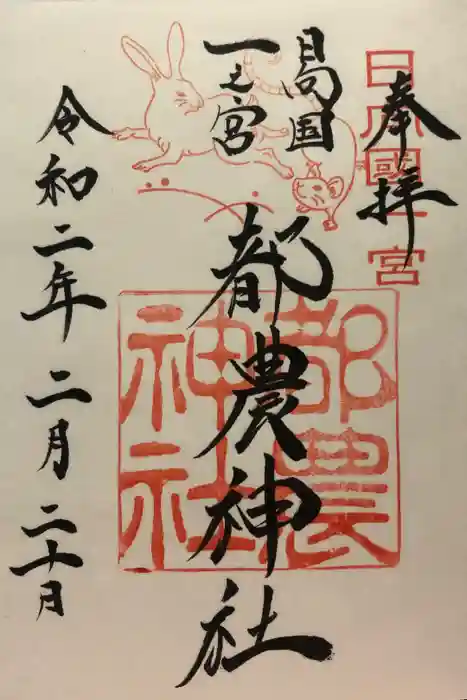 奉拝
日向國一宮
日向国
一之宮
都農神社
都農
神社
令和二年二月二十日